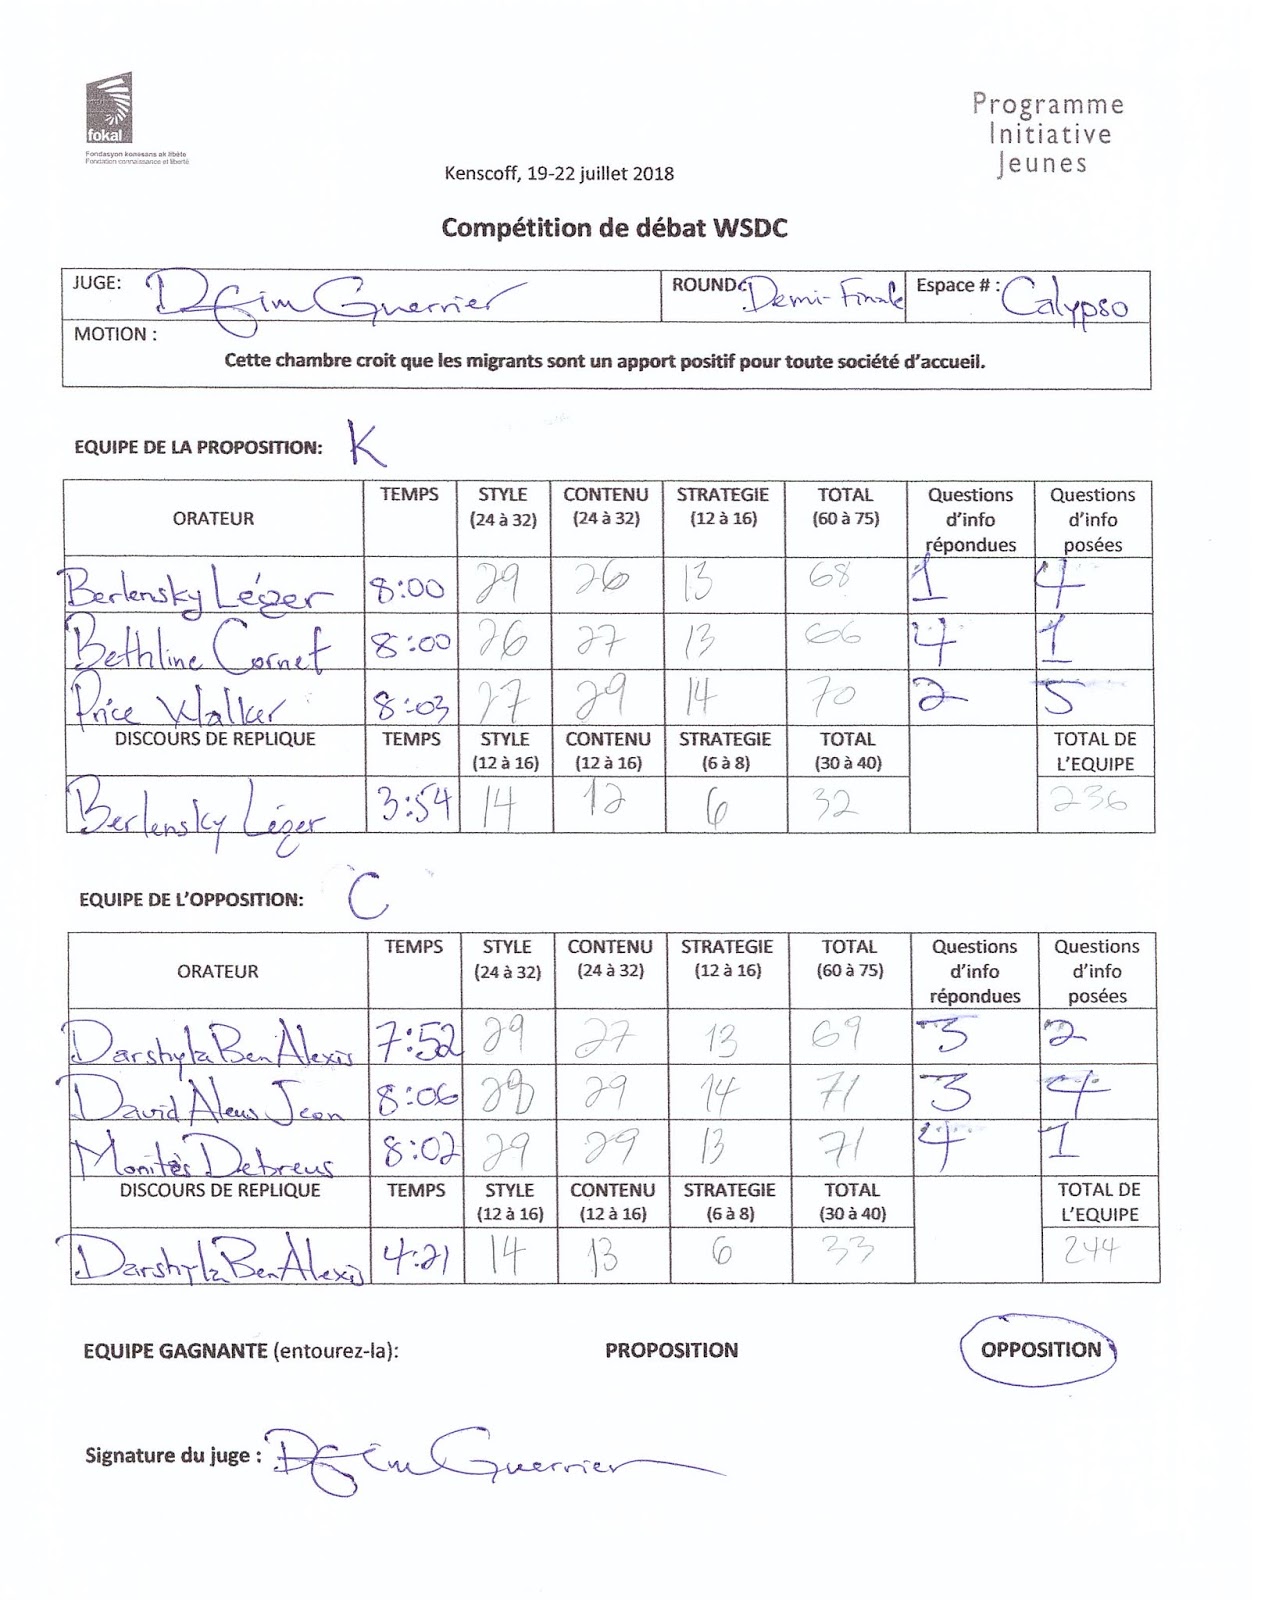 fokal
Fondasyon konesans ak libète
Fondation connaissance et liberté
Programme
Initiative
Jeunes
Kenscoff, 19-22 juillet 2018
Compétition de débat WSDC
JUGE: Guerrier ROUND: Demi-Finale Espace # : Calypso
MOTION :
Cette chambre croit que les migrants sont un apport positif pour toute société d'accueil.
EQUIPE DE LA PROPOSITION: K
ORATEUR TEMPS STYLE (24 à 32) CONTENU (24 à 32) STRATEGIE (12 à 16) TOTAL (60 à 75) Questions d'info répondues Questions d'info posées
Berlensky Léger 8:00 29 26 13 68 1 4
Bethline Cornet 8:00 26 27 13 66 4 1
Price Walker 8:03 27 29 14 70 2 5
DISCOURS DE REPLIQUE TEMPS STYLE (12 à 16) CONTENU (12 à 16) STRATEGIE (6 à 8) TOTAL (30 à 40) TOTAL DE L'EQUIPE
Berlensky Léger 3:54 14 12 6 32 236
EQUIPE DE L'OPPOSITION: C
ORATEUR TEMPS STYLE (24 à 32) CONTENU (24 à 32) STRATEGIE (12 à 16) TOTAL (60 à 75) Questions d'info répondues Questions d'info posées
Darshyla Ben Alexis 7:52 29 27 13 69 3 2
David Aleus Jean 8:06 28 29 14 71 3 4
Monitès Debreus 8:02 29 29 13 71 4 1
DISCOURS DE REPLIQUE TEMPS STYLE (12 à 16) CONTENU (12 à 16) STRATEGIE (6 à 8) TOTAL (30 à 40) TOTAL DE L'EQUIPE
Darshyla Ben Alexis 4:21 14 13 6 33 244
EQUIPE GAGNANTE (entourez-la): PROPOSITION OPPOSITION
Signature du juge : Guerrier